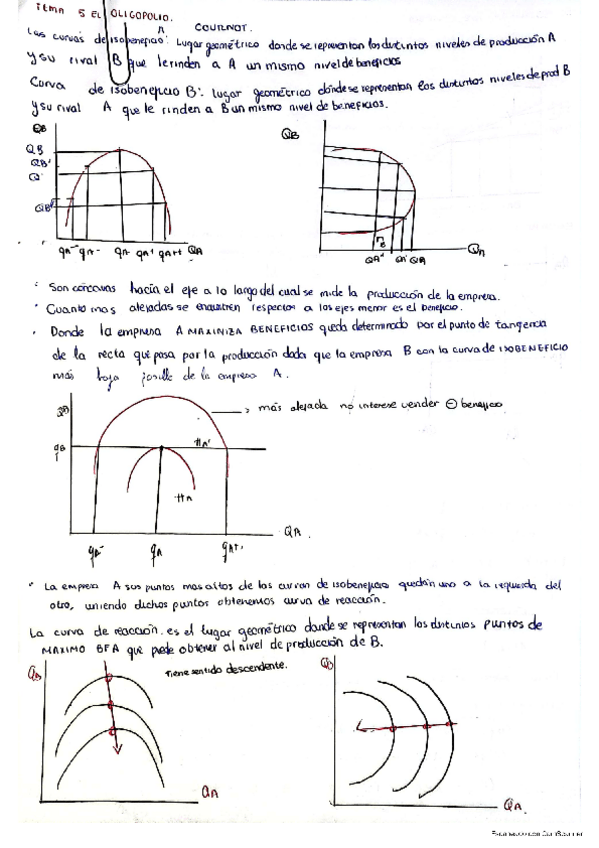 TEMA 5 EL OLIGOPOLIO.
COURNOT.
Las curvas de isobeneficio A: Lugar geométrico donde se representan los distintos niveles de producción A
y su rival B que le rinden a A un mismo nivel de beneficios
Curva de isobeneficio B: lugar geométrico donde se representan los distintos niveles de prod B
y su rival A que le rinden a B un mismo nivel de beneficios.
QB
QB
QB'
Q'
QB
qA-- qA- qA qA+ qA++ QA
QB
QA'' QA' QA
QA
· Son cóncavas hacia el eje a lo largo del cual se mide la producción de la empresa.
· Cuanto mas alejadas se encuentren respecto a los ejes menor es el beneficio.
· Donde la empresa A MAXIMIZA BENEFICIOS queda determinado por el punto de tangencia
de la recta que pasa por la producción dada que la empresa B con la curva de ISOBENEFICIO
más baja posible de la empresa A.
más alejada no interese vender ⊖ beneficio
qB
ΠA'
ΠA
QA.
qA- qA qA+
· La empresa A sus puntos mas altos de las curvas de isobeneficio quedan uno a la izquierda del
otro, uniendo dichos puntos obtenemos curva de reacción.
La curva de reacción es el lugar geométrico donde se representan los distintos puntos de
MAXIMO BFA que puede obtener al nivel de producción de B.
QB
Tiene sentido descendente.
QB
QA
QA
Escaneado con CamScanner